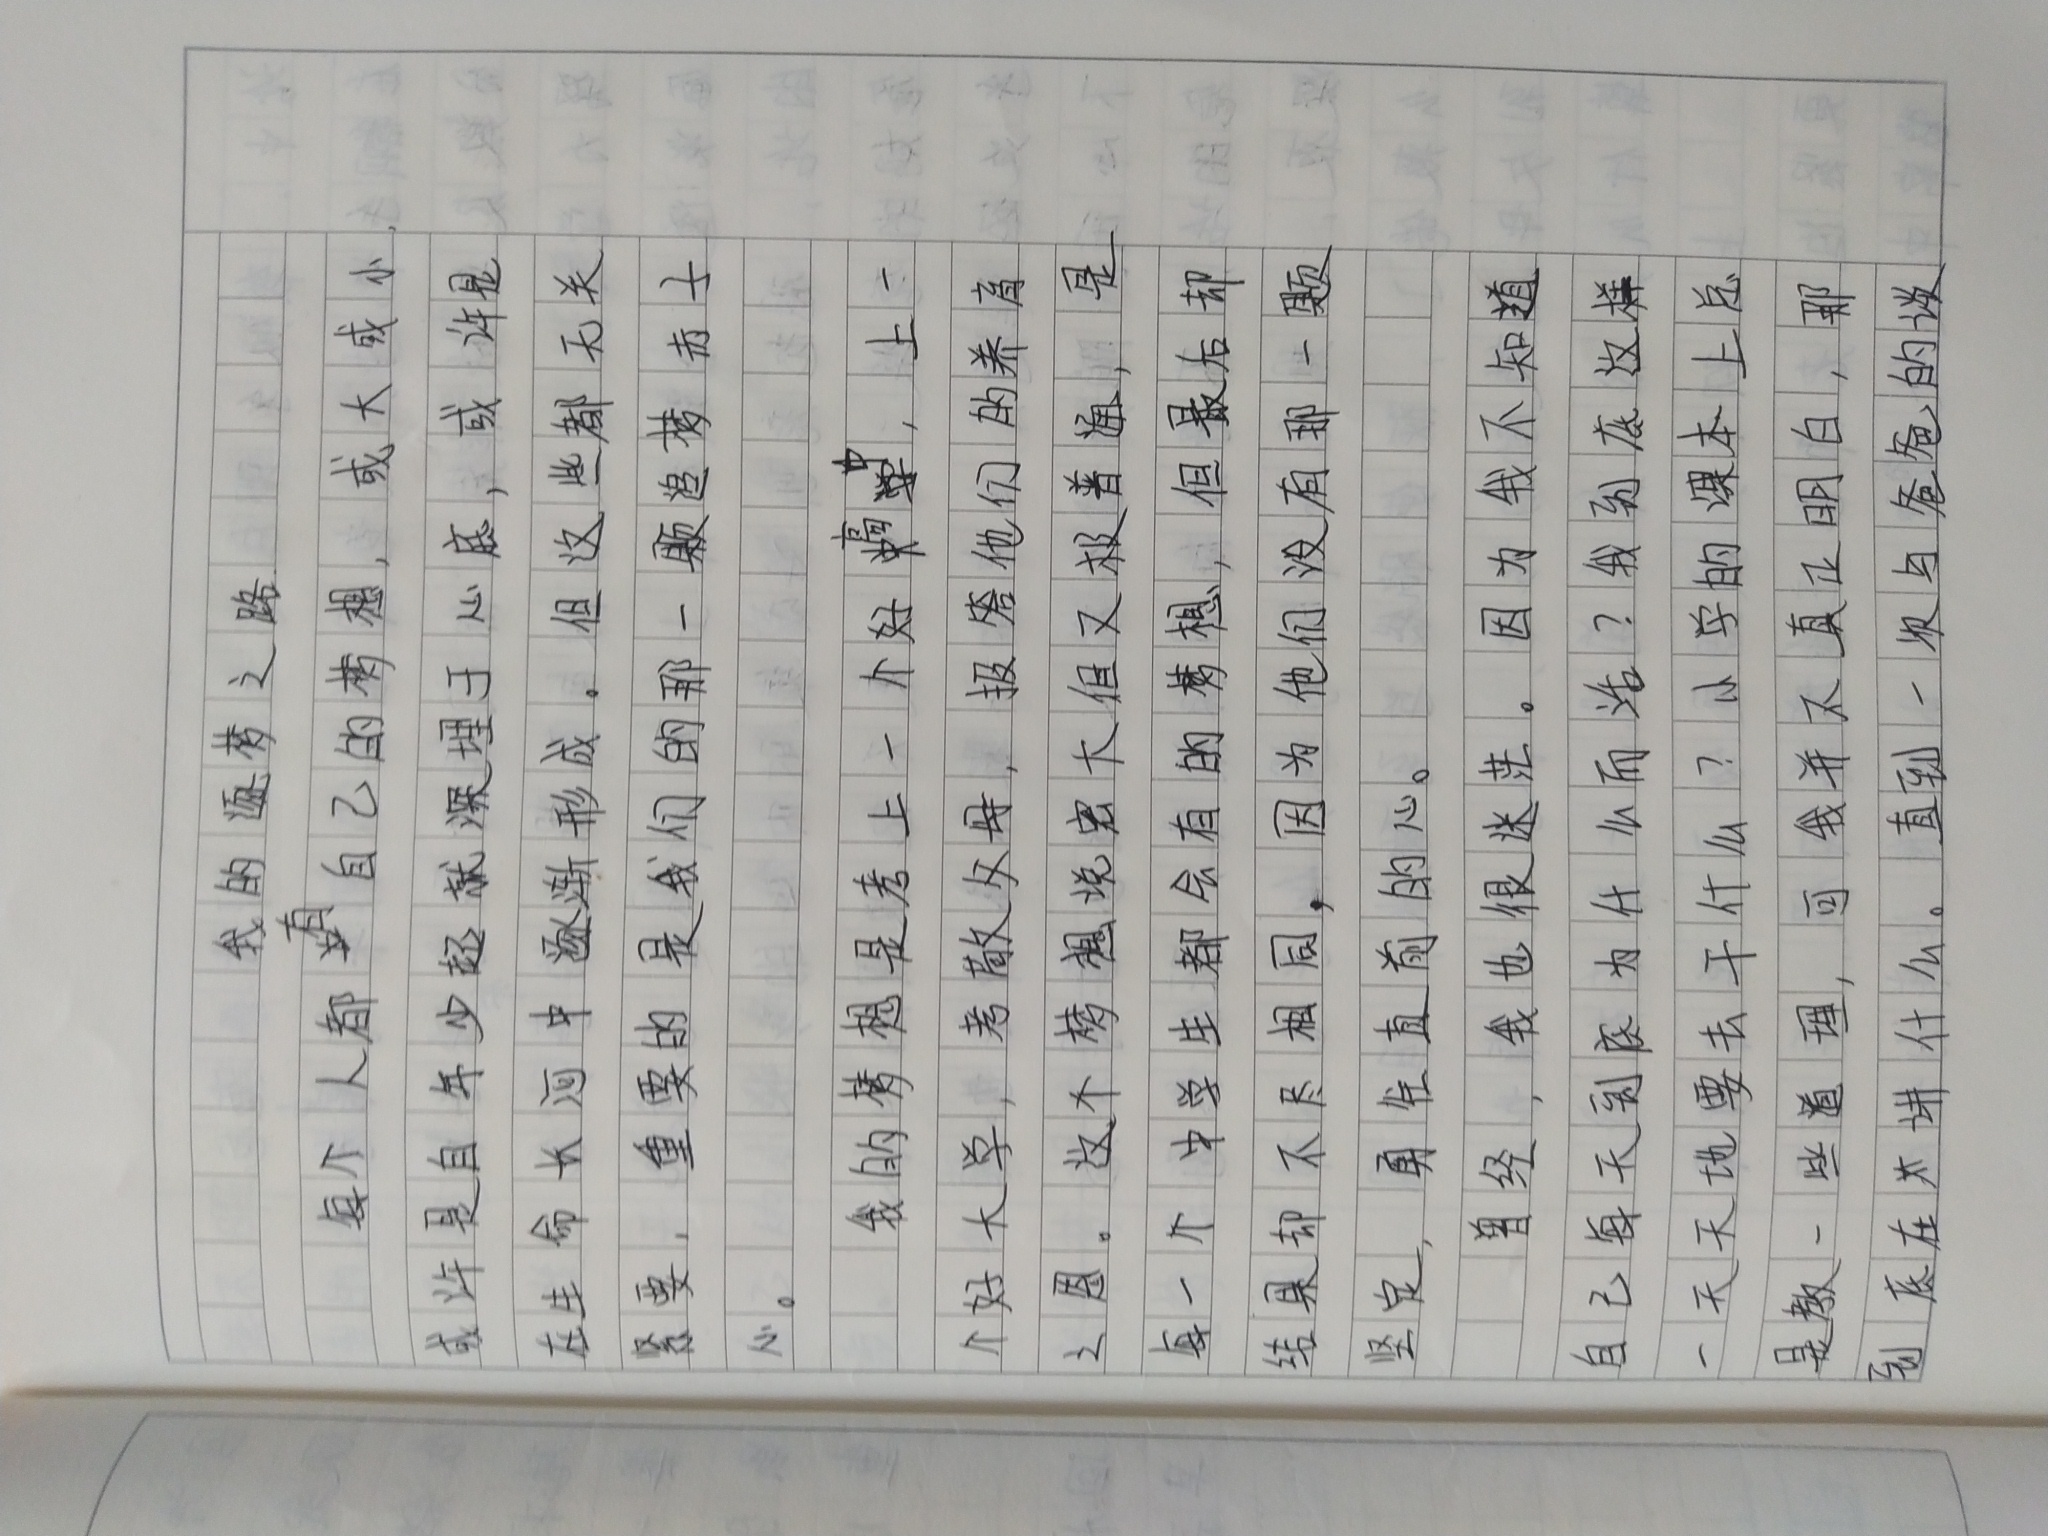 我的逐梦之路
每个人都有自己的梦想，或大或小，
或许是自年少起就深埋于心底，或许是
在生命长河中逐渐形成。但这些都无关
紧要，重要的是我们的那一颗追梦赤子
心。
我的梦想是考上一个好高中，上一
个好大学，孝敬父母，报答他们的养育
之恩。这个梦想说宏大但又极普通，是
每一个中学生都会有的梦想，但最后却
结果却不尽相同，因为他们没有那一颗
坚定，勇往直前的心。
曾经，我也很迷茫。因为我不知道
自己每天到底为什么而活？我到底这样
一天天地要去干什么？小学的课本上总
是教一些道理，可我并不真正明白，那
到底在讲什么。直到一次与爸爸的谈